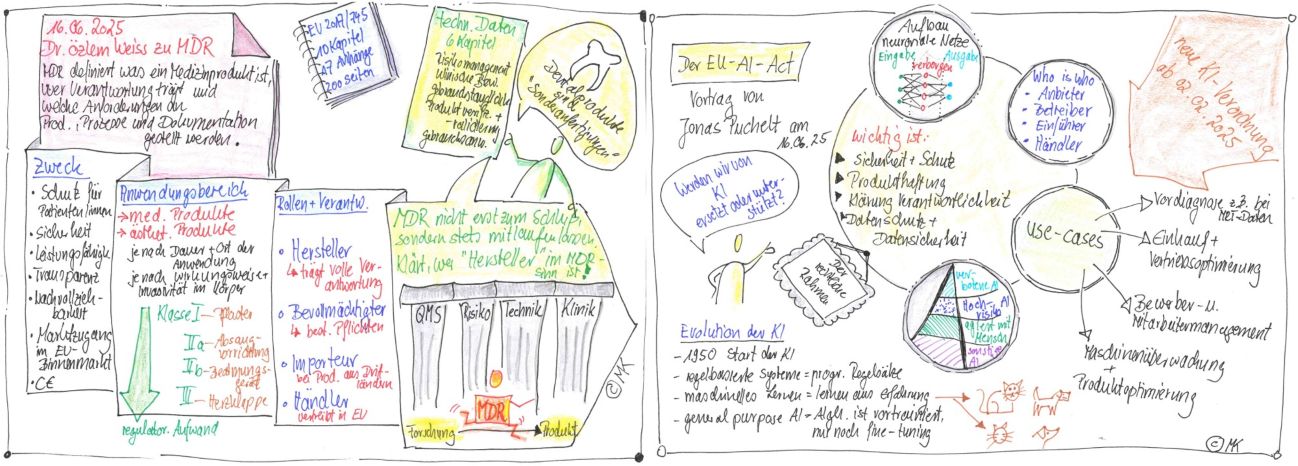 16.06.2025
Dr. Özlem Weiss zu MDR
MDR definiert was ein Medizinprodukt ist,
wer Verantwortung trägt und
welche Anforderungen an
Prod., Prozesse und Dokumentation
gestellt werden.
EU 2017/745
10 Kapitel
17 Anhänge
200 Seiten
techn. Daten
6 Kapitel
Risikomanagement
klinische Bew.
Produkt verifiz. +
- validierung
Dentalprodukte
sind
"Sonderanfertigungen"
Zweck
• Schutz für
Patienten/innen
• Sicherheit
• Leistungsfähigk.
• Transparenz
• Nachvollzieh-
barkeit
• Marktzugang
im EU-
Binnenmarkt
• C€
Anwendungsbereich
→ med. Produkte
→ ästhet. Produkte
je nach Dauer + Ort der
Anwendung
je nach Wirkungsweise +
Invasivität im Körper
Klasse I - Pflaster
IIa - Absaug-
vorrichtung
IIb - Beatmungs-
gerät
III - Herzklappe
regulator. Aufwand
Rollen + Verantw.
• Hersteller
↳ trägt volle Ver-
antwortung
• Bevollmächtigter
↳ best. Pflichten
• Importeur
bei Prod. aus Drit-
ländern
• Händler
vertreibt in EU
MDR nicht erst zum Schluss,
sondern stets mitlaufen lassen.
Klärt, wer "Hersteller" im MDR-
Sinn ist!
QMS Risiko Technik Klinik
MDR
Forschung → Produkt
©MK
Der EU-AI-Act
Vortrag von
Jonas Puchelt am
16.06.25
Werden wir von
KI
ersetzt oder unter-
stützt?
Der
rechtliche
Rahmen
Aufbau
neuronale Netze
Eingabe verborgen Ausgabe
Who is who
• Anbieter
• Betreiber
• Einführer
• Händler
neue KI-Verordnung
ab 02.02.2025
wichtig ist:
▶ Sicherheit + Schutz
▶ Produkthaftung
▶ Klärung Verantwortlichkeit
▶ Datenschutz +
Datensicherheit
use-cases
Vordiagnose z.B. bei
MRT-Daten
Einkauf +
Vertriebsoptimierung
Bewerber- u.
Mitarbeitermanagement
Maschinenüberwachung
+
Produktoptimierung
ver-
botene AI
Hoch- AI
risiko
agient mit
Mensch
sonstige
AI
Evolution der KI
- 1950 Start der KI
- regelbasierte Systeme = progr. Regelsätze
- maschinelles Lernen = lernen aus Erfahrung
- general purpose AI = Algh. ist vortrainiert,
nur noch fine-tuning
©MK